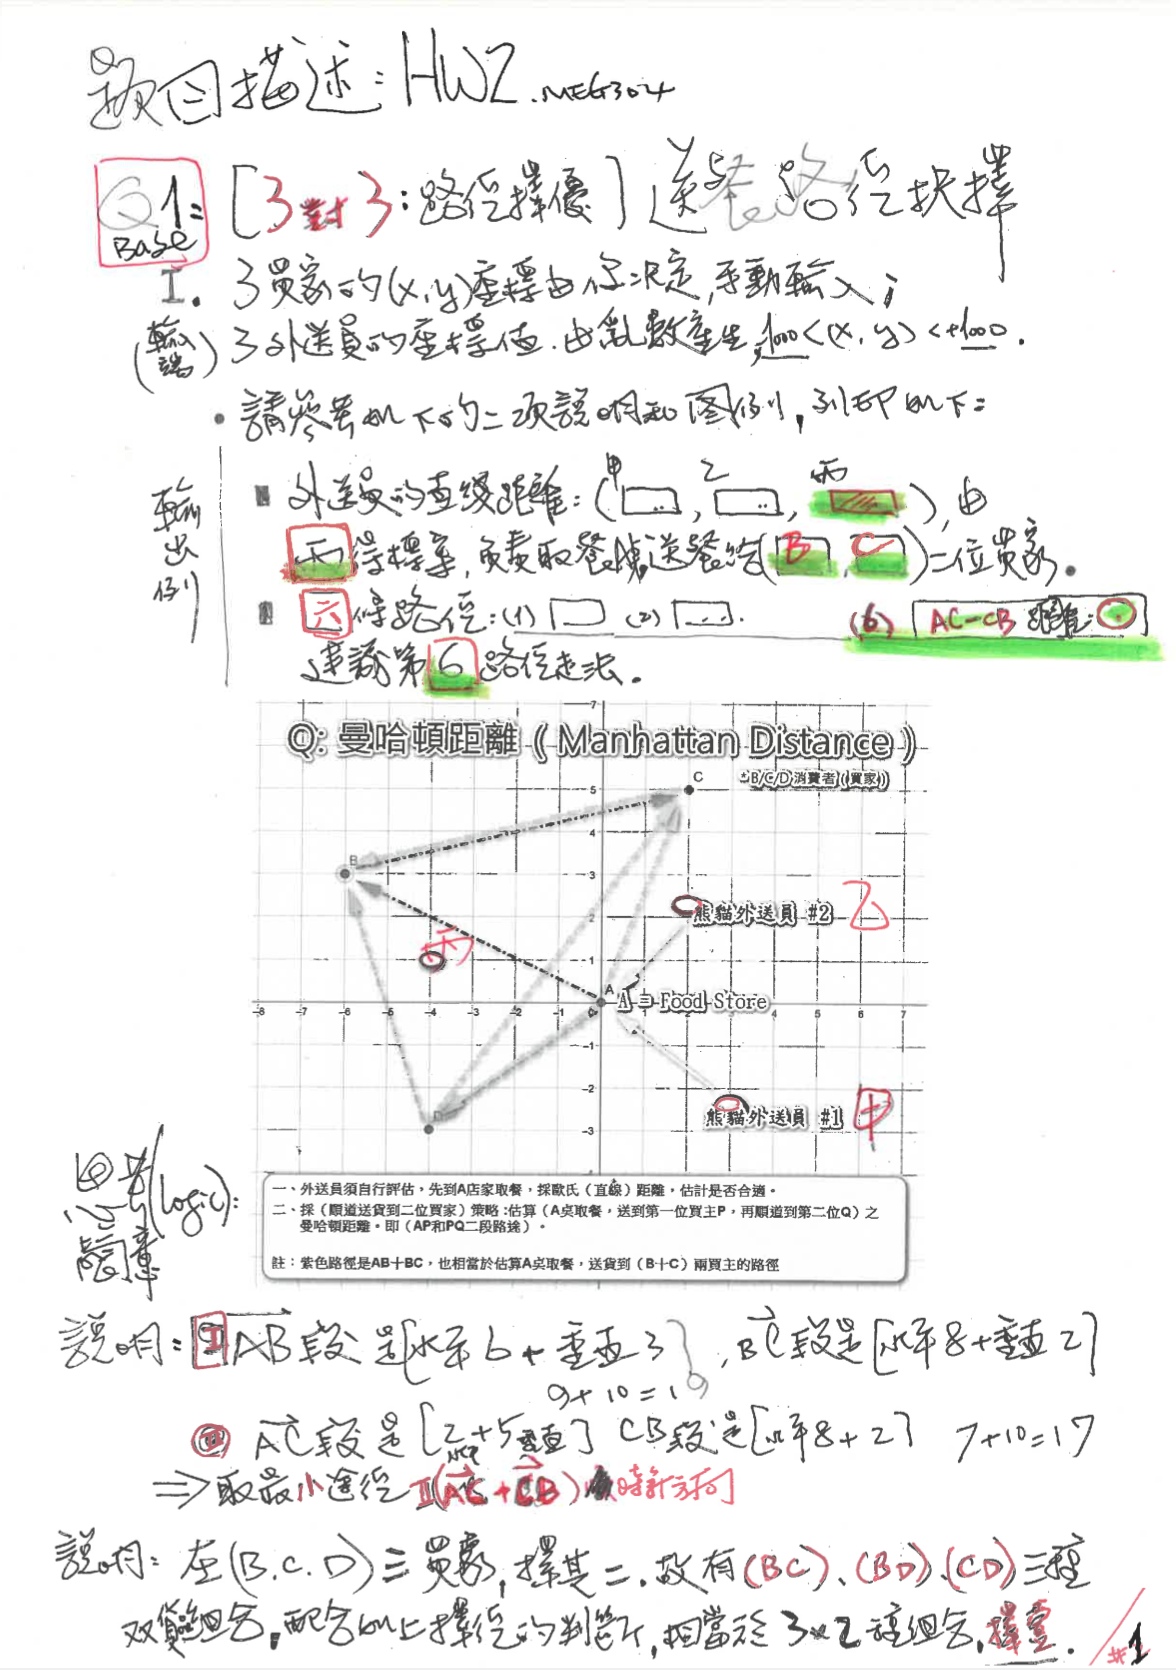 題目描述：HW2.MEG304
Q1: [3對3：路徑擇優] 送餐路徑抉擇
Base
I. 3買家的(x,y)座標由你決定,手動輸入;
(輸入端) 3外送員的座標值.由亂數產生,-1000<(x,y)<+1000.
• 請參考如下的二項說明和圖例,列印如下:
輸出例
甲 乙 丙
外送員的直線距離:( , , ),由
丙得標單,負責取餐後送餐給(B,C)二位買家.
六條路徑:(1) (2) (6) AC-CB 距離:
建議第6路徑走法.
Q: 曼哈頓距離（Manhattan Distance）
C B/C/D消費者(買家)
B
熊貓外送員 #2 乙
丙
A
A = Food Store
-8 -7 -6 -5 -4 -3 -2 -1 1 2 3 4 5 6 7
7 5 4 3 2 1 -1 -2 -3
D
熊貓外送員 #1 甲
思考(logic):
一、外送員須自行評估，先到A店家取餐，採歐氏（直線）距離，估計是否合適。
二、採（順道送貨到二位買家）策略:估算（A桌取餐，送到第一位買主P，再順道到第二位Q）之
曼哈頓距離。即（AP和PQ二段路途）。
註：紫色路徑是AB＋BC，也相當於估算A桌取餐，送貨到（B＋C）兩買主的路徑
說明: I AB段是[水平6+垂直3],BC段是[水平8+垂直2]
9+10=19
II AC段是[2+5垂直] CB段是[水平8+2] 7+10=17
水平
⇒取最小途徑II(AC+CB)順時針方向
說明: 在(B.C.D)三買家,擇其二.故有(BC)、(BD)、(CD)三種
双貨組合,配合以上擇徑的判斷,相當於3x2種組合,擇壹.
#1